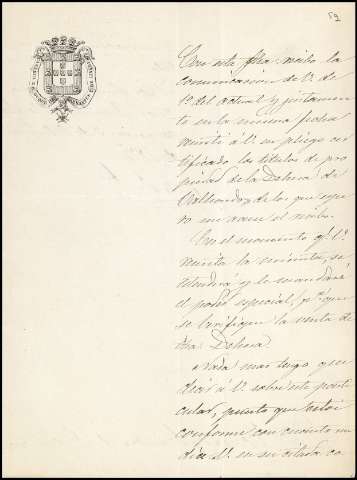 59
Con esta fha. recibo la
comunicacion de V. de
1º. del actual y juntamen
te en la misma fecha
remiti á V. en pliego cer
tificado los titulos de pro
piedad de la Dehesa de
de los que espe
ro un recibo.
En el momento q. V.
remita la minuta, se
estenderá y le mandaré
el poder especial, pª. que
se verifique la venta de
esta Dehesa
Nada mas tengo que
decir á V. sobre este parti
cular, puesto que estoi
conforme con cuanto me
dice V. en su citada co